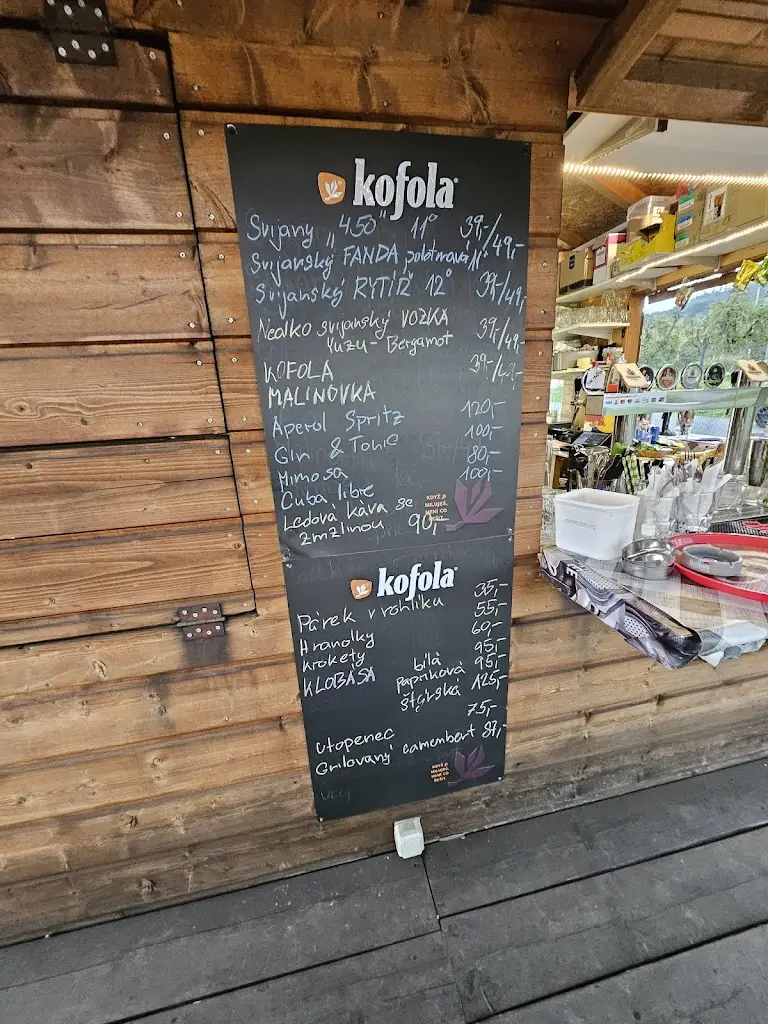 kofola
Svijany „450" 11° 39,-/49,-
Svijanský FANDA polotmavá 11°
Svijanský RYTÍŘ 12° 39,-/49,-
Nealko svijanský VOZKA 39,-/49,-
Yuzu - Bergamot
KOFOLA
MALINOVKA
Aperol Spritz 120,-
Gin & Tonic 100,-
Mimosa 80,-
Cuba libre 100,-
Ledová káva se
zmzlinou 90,-
KDYŽ JI
MILUJEŠ,
NENÍ CO
ŘEŠIT
kofola
Párek v rohlíku 35,-
Hranolky 55,-
Krokety 60,-
KLOBÁSA bílá 95,-
papriková 95,-
štýrská 125,-
Utopenec 75,-
Grilovaný camembert 87,-
KDYŽ JI
MILUJEŠ,
NENÍ CO
ŘEŠIT